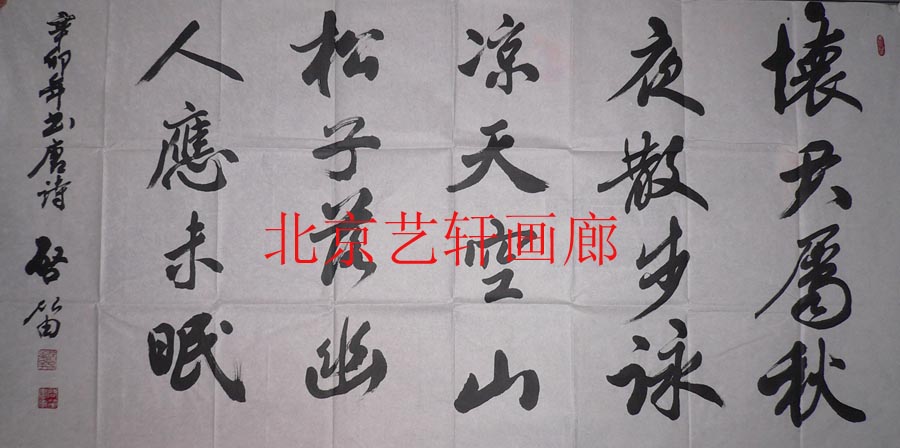 懷君屬秋
夜散步詠
涼天空山
松子落幽
人應未眠
辛卯年书唐詩 啓笛
北京艺轩画廊